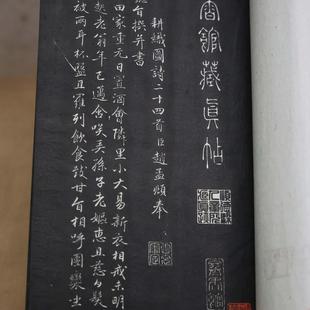 香館藏眞帖
耕織圖詩二十四首臣趙孟頫奉
懿旨撰并書
田家重元日置酒會隣里小大易新衣相戒未明
起老翁年已邁含笑弄孫子老嫗惠且慈白髮
被兩耳杯盤且羅列飲食致甘旨相呼團欒坐